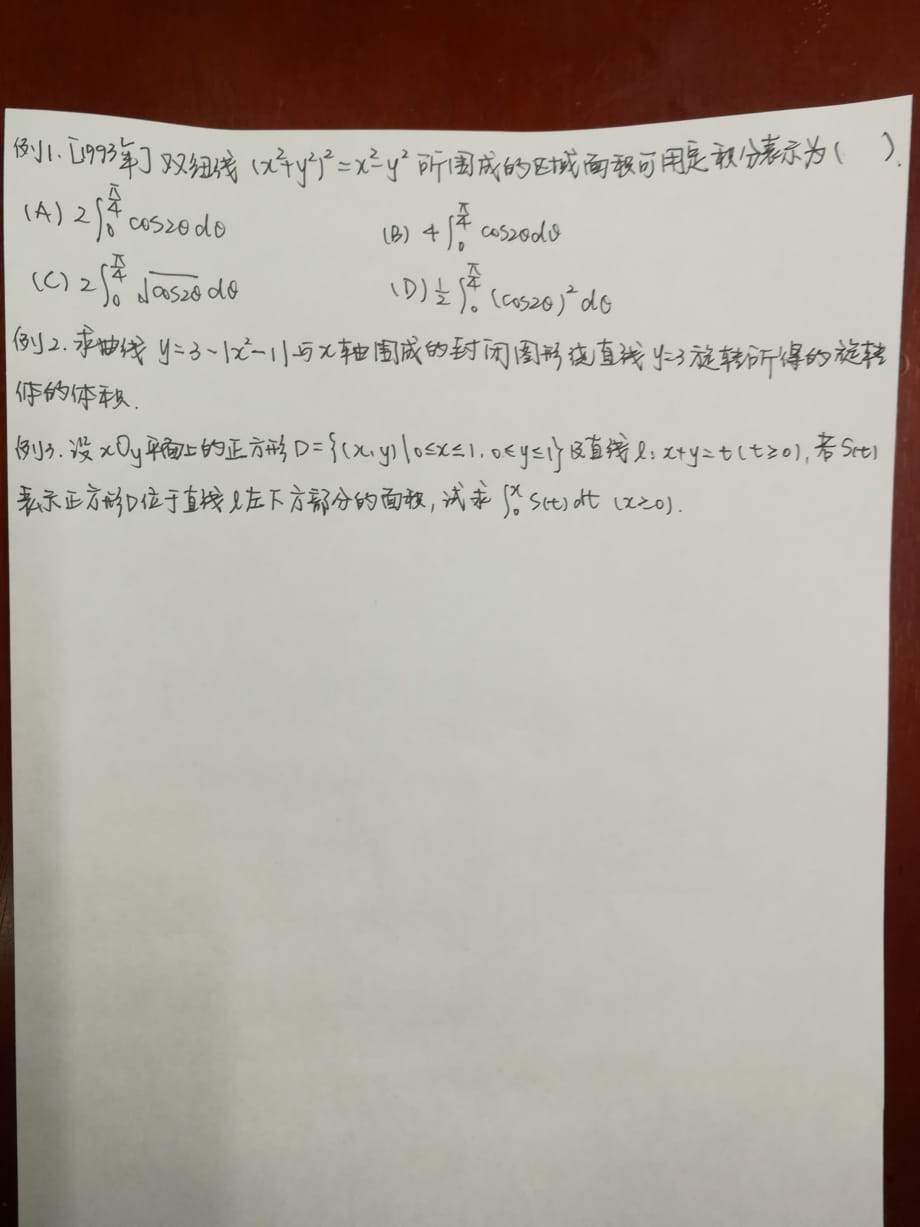 例1.[1993年] 双纽线 (x²+y²)²=x²-y² 所围成的区域面积可用定积分表示为( ).
(A) 2∫₀^{π/4} cos2θdθ (B) 4∫₀^{π/4} cos2θdθ
(C) 2∫₀^{π/4} √cos2θ dθ (D) ½∫₀^{π/4} (cos2θ)²dθ
例2.求曲线 y=3-|x²-1|与x轴围成的封闭图形绕直线y=3旋转所得的旋转
体的体积.
例3.设xOy平面上的正方形D={(x,y)|0≤x≤1,0≤y≤1}及直线l:x+y=t(t≥0),若S(t)
表示正方形D位于直线l左下方部分的面积,试求∫₀^x S(t)dt (x≥0).